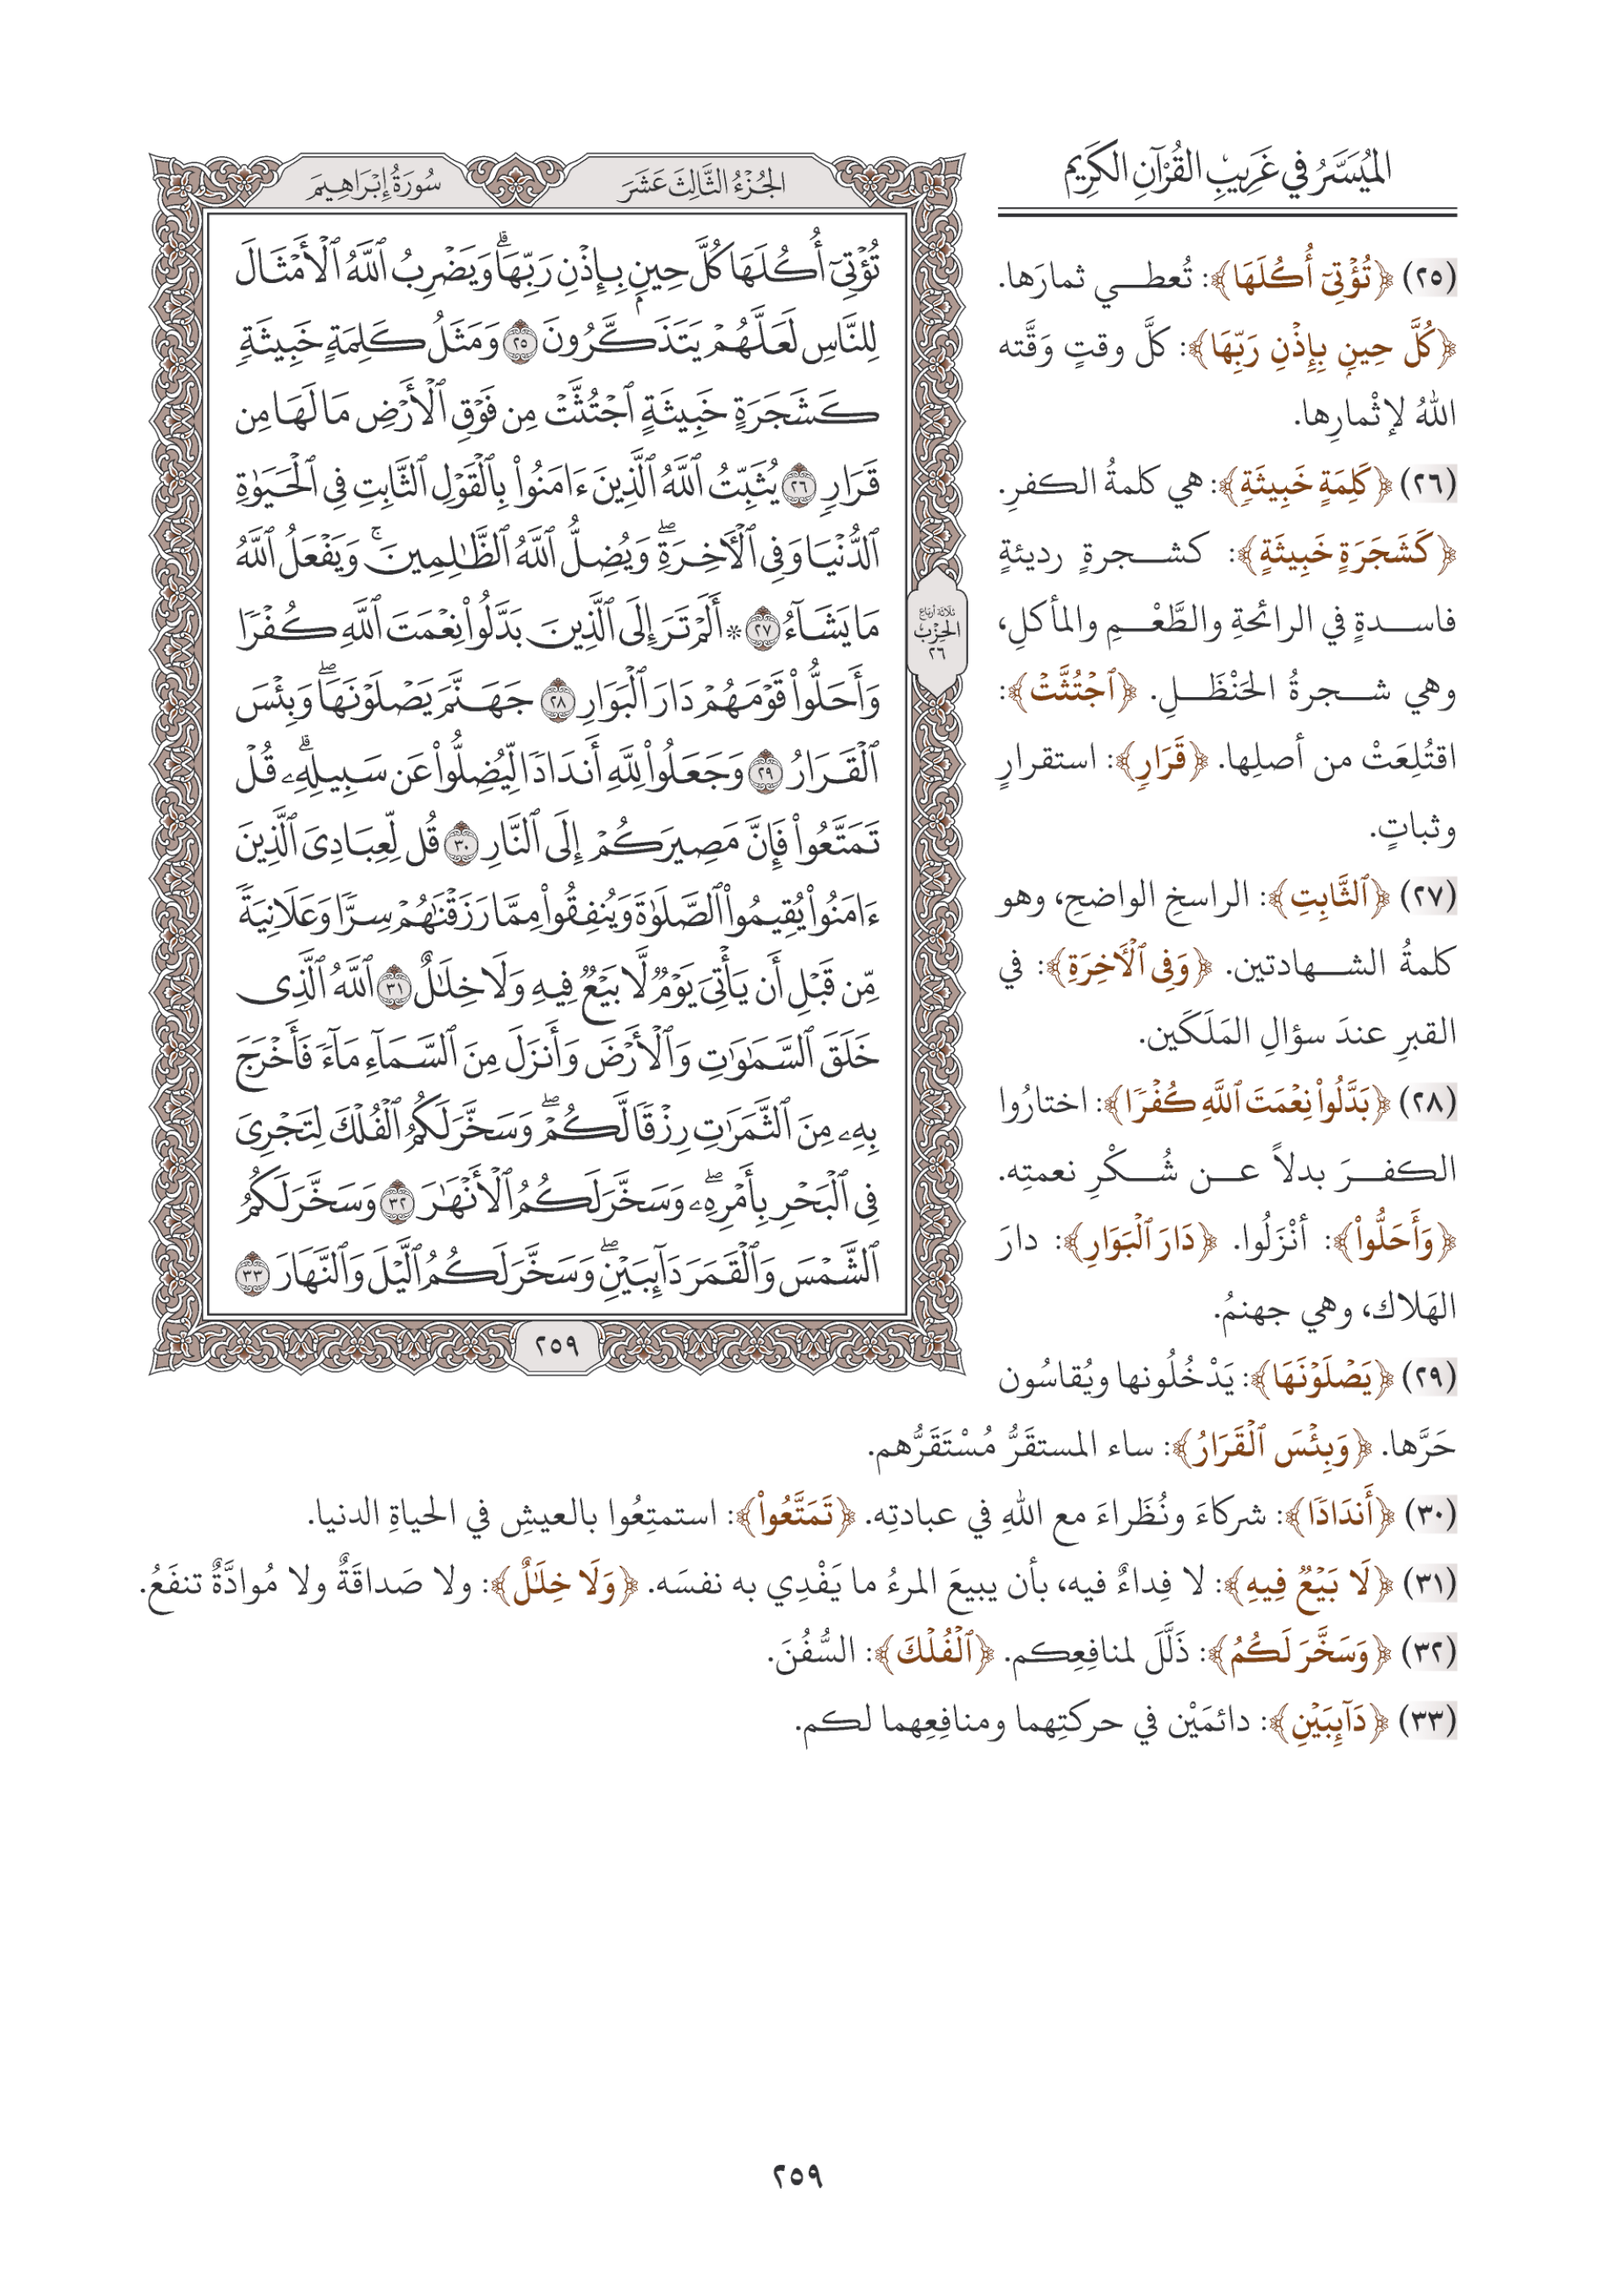 الميَسَّرُ في غَرِيبِ القُرْآنِ الكَرِيم
(٢٥) ﴿تُؤْتِىٓ أُكُلَهَا﴾: تُعطي ثمارَها.
﴿كُلَّ حِينِۭ بِإِذْنِ رَبِّهَا﴾: كلَّ وقتٍ وَقَّته
اللهُ لإثْمارِها.
(٢٦) ﴿كَلِمَةٍ خَبِيثَةٍ﴾: هي كلمةُ الكفرِ.
﴿كَشَجَرَةٍ خَبِيثَةٍ﴾: كشجرةٍ رديئةٍ
فاسدةٍ في الرائحةِ والطَّعْمِ والمأكلِ،
وهي شجرةُ الحَنْظَلِ. ﴿ٱجْتُثَّتْ﴾:
اقتُلِعَتْ من أصلِها. ﴿قَرَارٍ﴾: استقرارٍ
وثباتٍ.
(٢٧) ﴿ٱلثَّابِتِ﴾: الراسخِ الواضحِ، وهو
كلمةُ الشهادتين. ﴿وَفِى ٱلْأَخِرَةِ﴾: في
القبرِ عندَ سؤالِ المَلَكَين.
(٢٨) ﴿بَدَّلُوا۟ نِعْمَتَ ٱللَّهِ كُفْرًا﴾: اختارُوا
الكفرَ بدلاً عن شُكْرِ نعمتِه.
﴿وَأَحَلُّوا۟﴾: أنْزَلُوا. ﴿دَارَ ٱلْبَوَارِ﴾: دارَ
الهَلاك، وهي جهنمُ.
(٢٩) ﴿يَصْلَوْنَهَا﴾: يَدْخُلُونها ويُقاسُون
حَرَّها. ﴿وَبِئْسَ ٱلْقَرَارُ﴾: ساء المستقَرُّ مُسْتَقَرُّهم.
(٣٠) ﴿أَندَادًا﴾: شركاءَ ونُظَراءَ مع اللهِ في عبادتِه. ﴿تَمَتَّعُوا۟﴾: استمتِعُوا بالعيشِ في الحياةِ الدنيا.
(٣١) ﴿لَا بَيْعٌ فِيهِ﴾: لا فِداءٌ فيه، بأن يبيعَ المرءُ ما يَفْدِي به نفسَه. ﴿وَلَا خِلَٰلٌ﴾: ولا صَداقَةٌ ولا مُوادَّةٌ تنفَعُ.
(٣٢) ﴿وَسَخَّرَ لَكُمُ﴾: ذَلَّلَ لمنافِعِكم. ﴿ٱلْفُلْكَ﴾: السُّفُنَ.
(٣٣) ﴿دَآئِبَيْنِ﴾: دائمَيْن في حركتِهما ومنافِعِهما لكم.
الجُزْءُ الثَّالِثَ عَشَرَ
سُورَةُ إِبْرَاهِيمَ
تُؤْتِىٓ أُكُلَهَا كُلَّ حِينِۭ بِإِذْنِ رَبِّهَا ۗ وَيَضْرِبُ ٱللَّهُ ٱلْأَمْثَالَ
لِلنَّاسِ لَعَلَّهُمْ يَتَذَكَّرُونَ ٢٥ وَمَثَلُ كَلِمَةٍ خَبِيثَةٍ
كَشَجَرَةٍ خَبِيثَةٍ ٱجْتُثَّتْ مِن فَوْقِ ٱلْأَرْضِ مَا لَهَا مِن
قَرَارٍ ٢٦ يُثَبِّتُ ٱللَّهُ ٱلَّذِينَ ءَامَنُوا۟ بِٱلْقَوْلِ ٱلثَّابِتِ فِى ٱلْحَيَوٰةِ
ٱلدُّنْيَا وَفِى ٱلْأَخِرَةِ ۖ وَيُضِلُّ ٱللَّهُ ٱلظَّٰلِمِينَ ۚ وَيَفْعَلُ ٱللَّهُ
مَا يَشَآءُ ٢٧ * أَلَمْ تَرَ إِلَى ٱلَّذِينَ بَدَّلُوا۟ نِعْمَتَ ٱللَّهِ كُفْرًا
وَأَحَلُّوا۟ قَوْمَهُمْ دَارَ ٱلْبَوَارِ ٢٨ جَهَنَّمَ يَصْلَوْنَهَا ۖ وَبِئْسَ
ٱلْقَرَارُ ٢٩ وَجَعَلُوا۟ لِلَّهِ أَندَادًا لِّيُضِلُّوا۟ عَن سَبِيلِهِۦ ۗ قُلْ
تَمَتَّعُوا۟ فَإِنَّ مَصِيرَكُمْ إِلَى ٱلنَّارِ ٣٠ قُل لِّعِبَادِىَ ٱلَّذِينَ
ءَامَنُوا۟ يُقِيمُوا۟ ٱلصَّلَوٰةَ وَيُنفِقُوا۟ مِمَّا رَزَقْنَٰهُمْ سِرًّا وَعَلَانِيَةً
مِّن قَبْلِ أَن يَأْتِىَ يَوْمٌ لَّا بَيْعٌ فِيهِ وَلَا خِلَٰلٌ ٣١ ٱللَّهُ ٱلَّذِى
خَلَقَ ٱلسَّمَٰوَٰتِ وَٱلْأَرْضَ وَأَنزَلَ مِنَ ٱلسَّمَآءِ مَآءً فَأَخْرَجَ
بِهِۦ مِنَ ٱلثَّمَرَٰتِ رِزْقًا لَّكُمْ ۖ وَسَخَّرَ لَكُمُ ٱلْفُلْكَ لِتَجْرِىَ
فِى ٱلْبَحْرِ بِأَمْرِهِۦ ۖ وَسَخَّرَ لَكُمُ ٱلْأَنْهَٰرَ ٣٢ وَسَخَّرَ لَكُمُ
ٱلشَّمْسَ وَٱلْقَمَرَ دَآئِبَيْنِ ۖ وَسَخَّرَ لَكُمُ ٱلَّيْلَ وَٱلنَّهَارَ ٣٣
ثلاثة أرباع
الحِزْب
٢٦
٢٥٩
٢٥٩